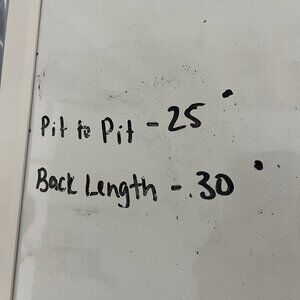 Pit to Pit - 25"
Back Length - 30"